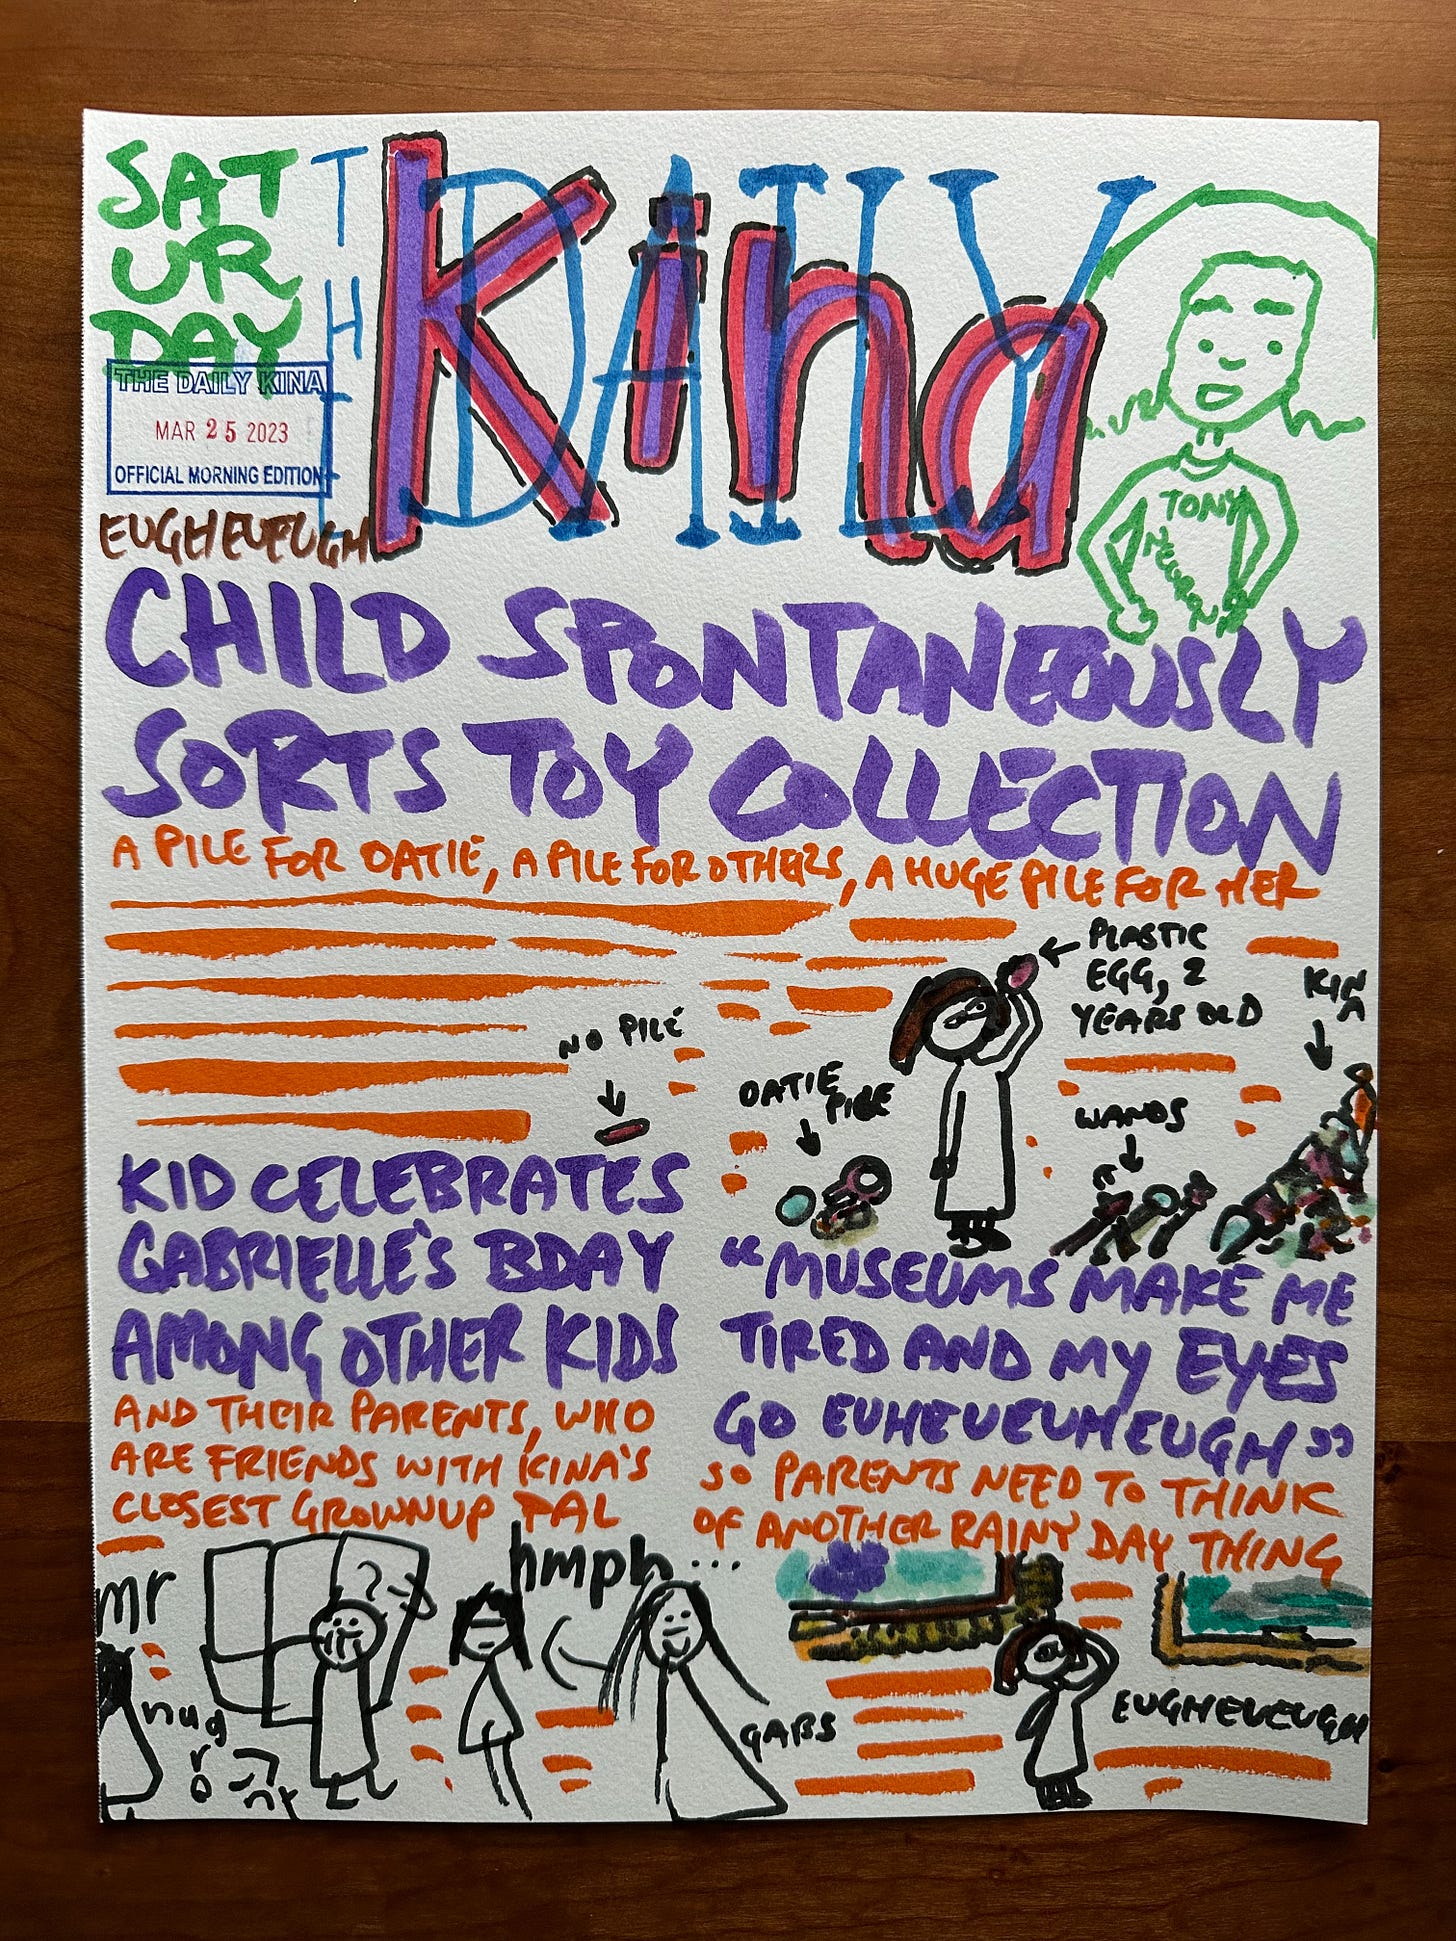 SAT
UR
DAY
THE DAILY
Kina
THE DAILY KINA
MAR 25 2023
OFFICIAL MORNING EDITION
EUGHEUEUGH
TONY
CHILD SPONTANEOUSLY
SORTS TOY COLLECTION
A PILE FOR OATIE, A PILE FOR OTHERS, A HUGE PILE FOR HER
PLASTIC
EGG, 2
YEARS OLD
KIN
A
NO PILE
OATIE
PILE
WANDS
KID CELEBRATES
GABRIELLE'S BDAY
AMONG OTHER KIDS
AND THEIR PARENTS, WHO
ARE FRIENDS WITH KINA'S
CLOSEST GROWNUP PAL
mr
nug
?
hmph...
GABS
"MUSEUMS MAKE ME
TIRED AND MY EYES
GO EUHEUEUHEUGH"
SO PARENTS NEED TO THINK
OF ANOTHER RAINY DAY THING
EUGHEUEUGH